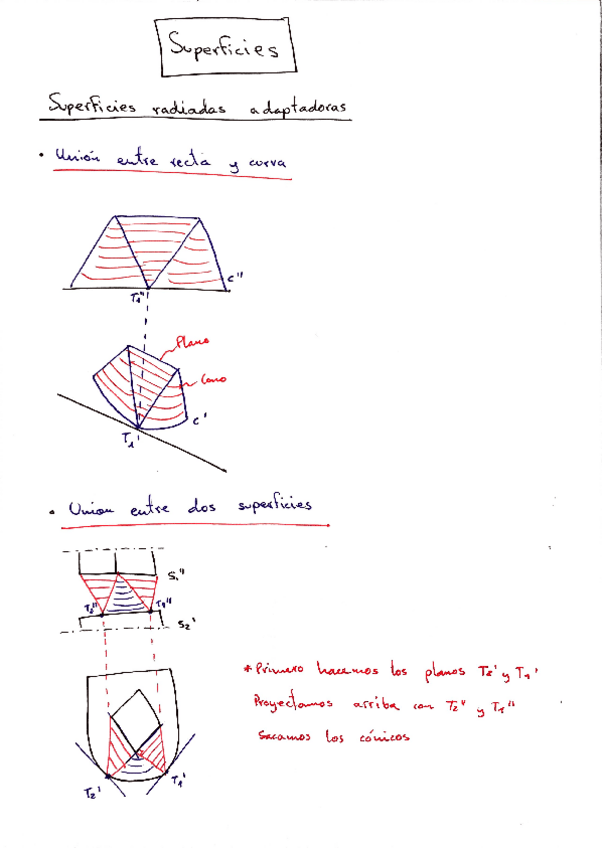 Superficies
Superficies radiadas adaptadoras
• Unión entre recta y curva
C''
T₁''
Plano
Cono
C'
T₁'
• Union entre dos superficies
S₁''
T₂'' T₁''
S₂'
* Primero hacemos los planos T₂' y T₁'
Proyectamos arriba con T₂'' y T₁''
Sacamos los cónicos
T₂' T₁'